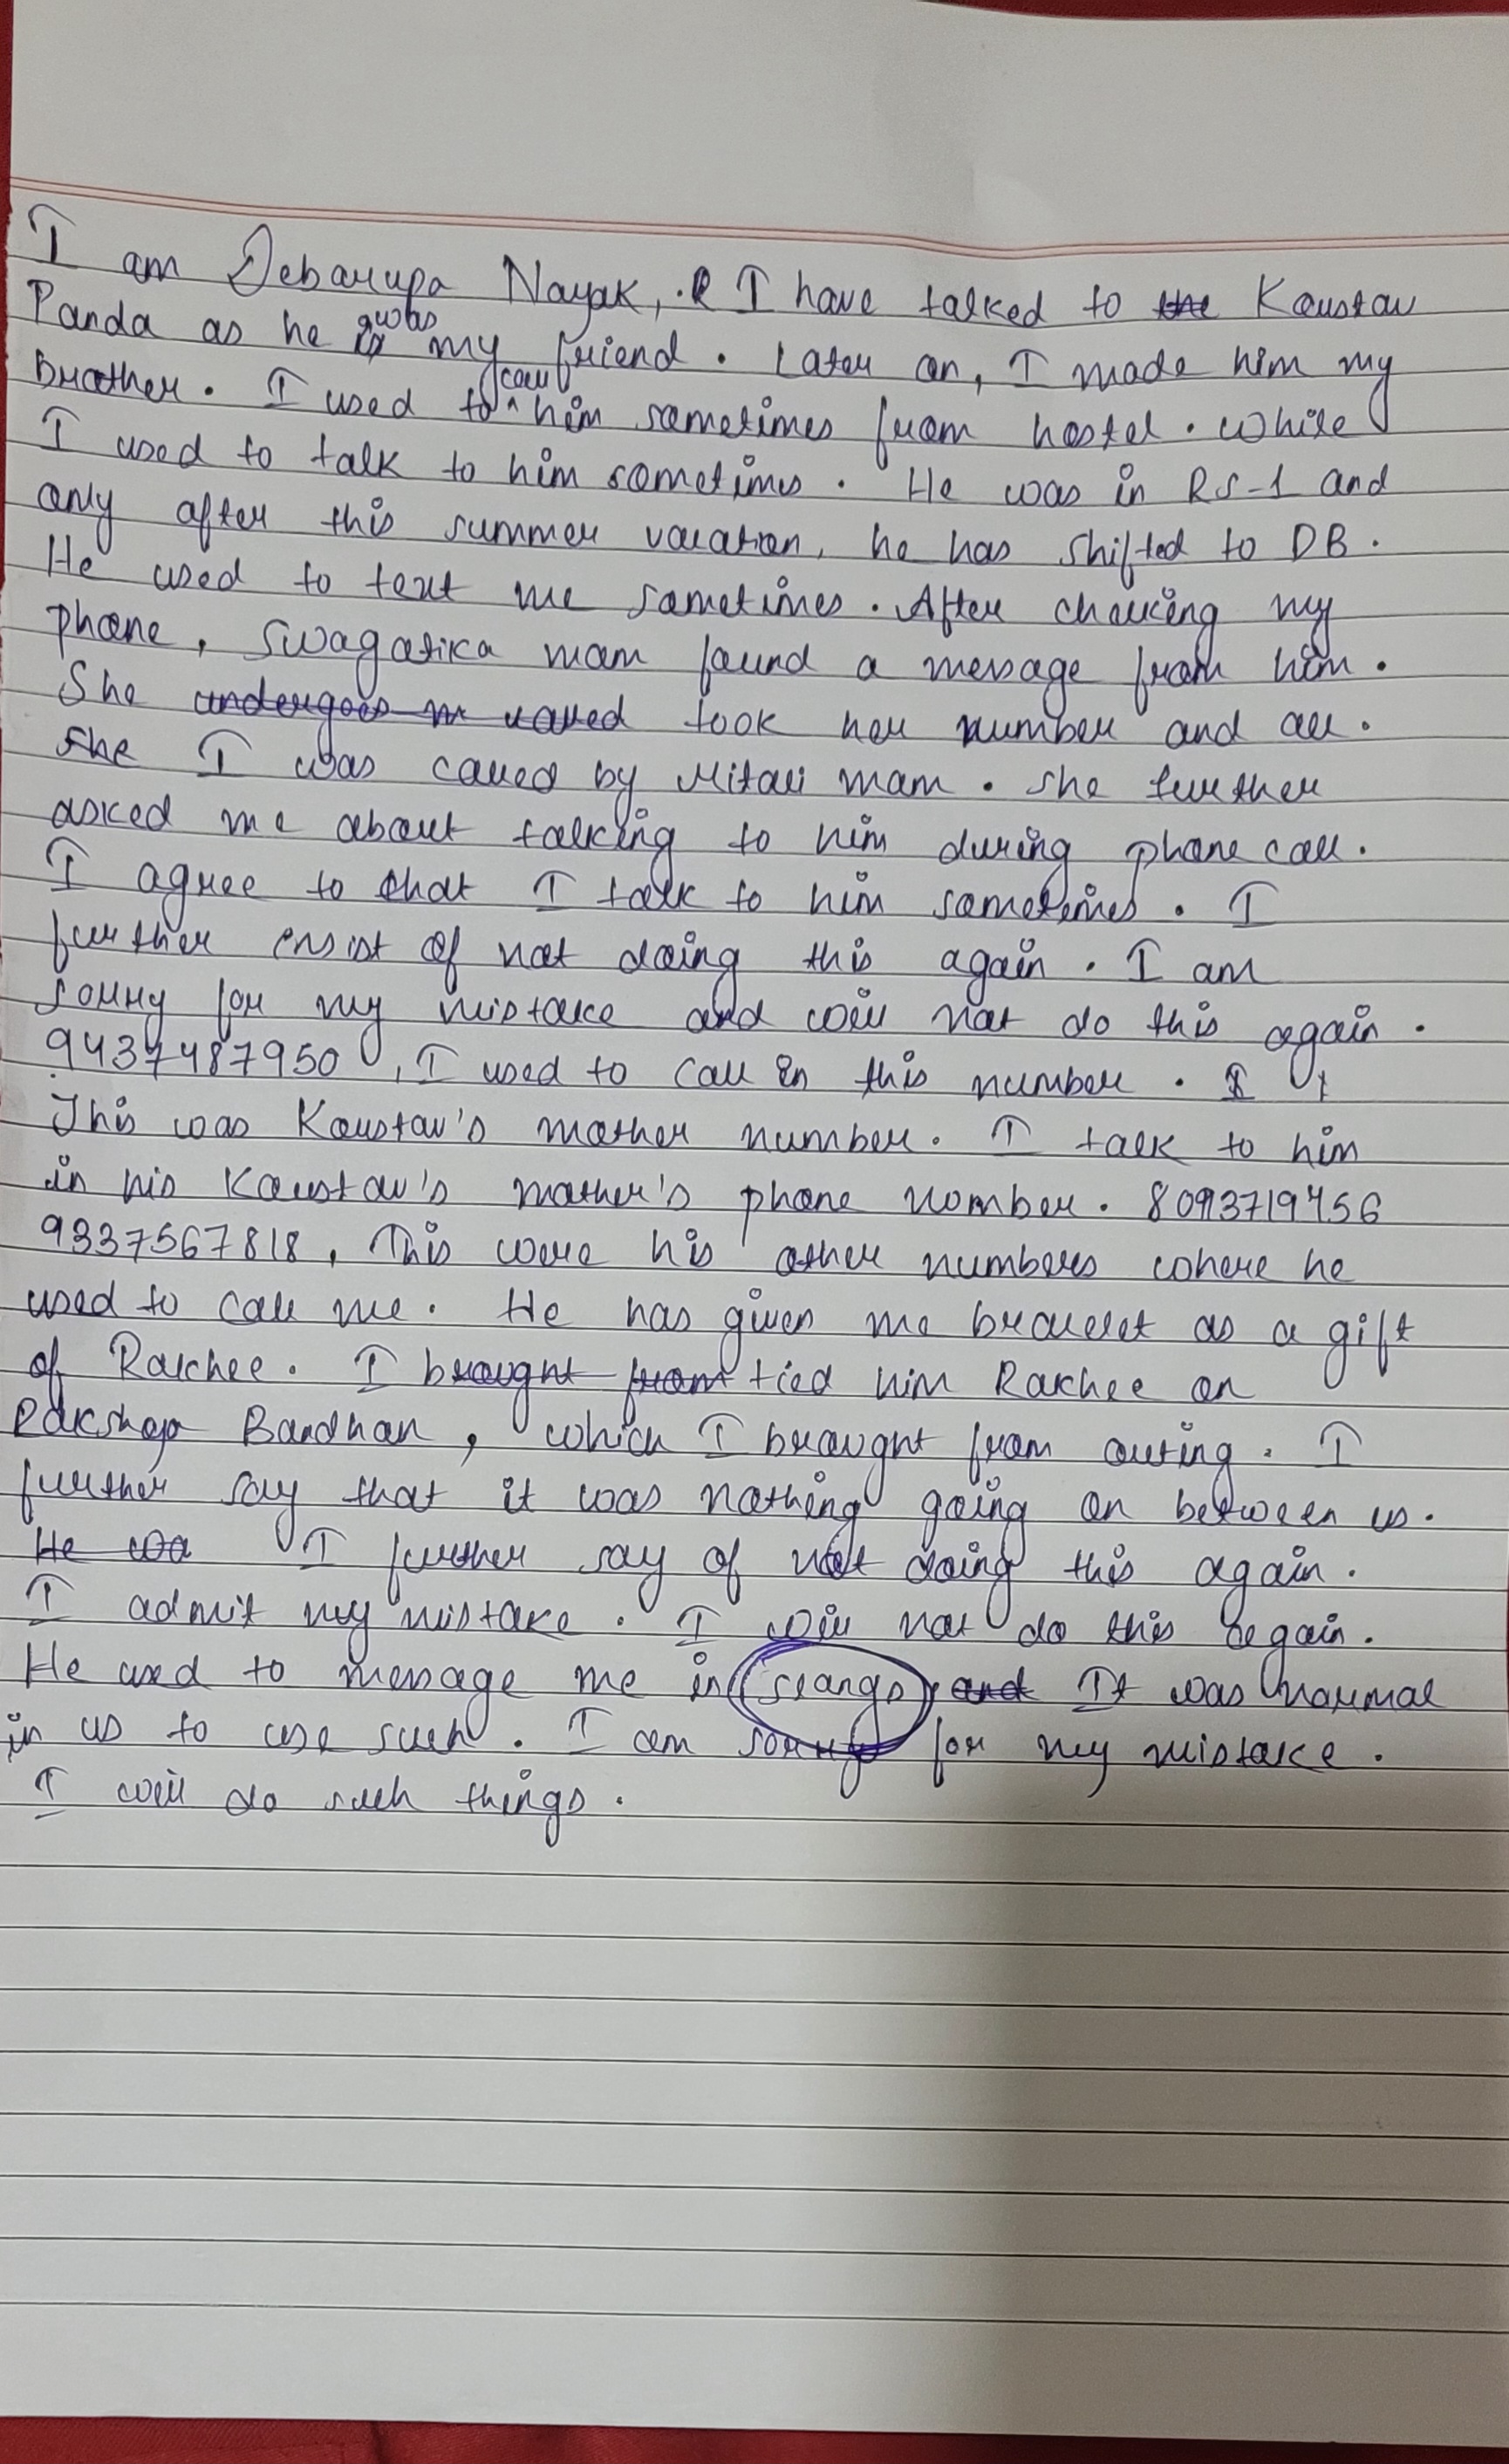 I am Debarupa Nayak, I have talked to the Kaustav
Panda as he was my friend. Later on, I made him my
brother. I used to call him sometimes from hostel. While
I used to talk to him sometimes. He was in RS-1 and
only after this summer vacation, he has shifted to DB.
He used to text me sometimes. After checking my
phone, Swagatika mam found a message from him.
She undergoes took her number and all.
She I was called by Mitali mam. She further
asked me about talking to him during phone call.
I agree to that I talk to him sometimes. I
further ensist of not doing this again. I am
sorry for my mistake and will not do this again.
9437487950, I used to call in this number.
This was Kaustav's mother number. I talk to him
in his Kaustav's mother's phone nomber. 8093719456
9337567818, This were his other numbers where he
used to call me. He has given me bracelet as a gift
of Rakhee. I brought from tied him Rakhee on
Rakshya Bandhan, which I brought from outing. I
further say that it was nothing going on between us.
He wa I further say of not doing this again.
I admit my mistake. I will not do this again.
He used to message me in slangs and It was normal
in us to use such. I am sorry for my mistake.
I will do such things.